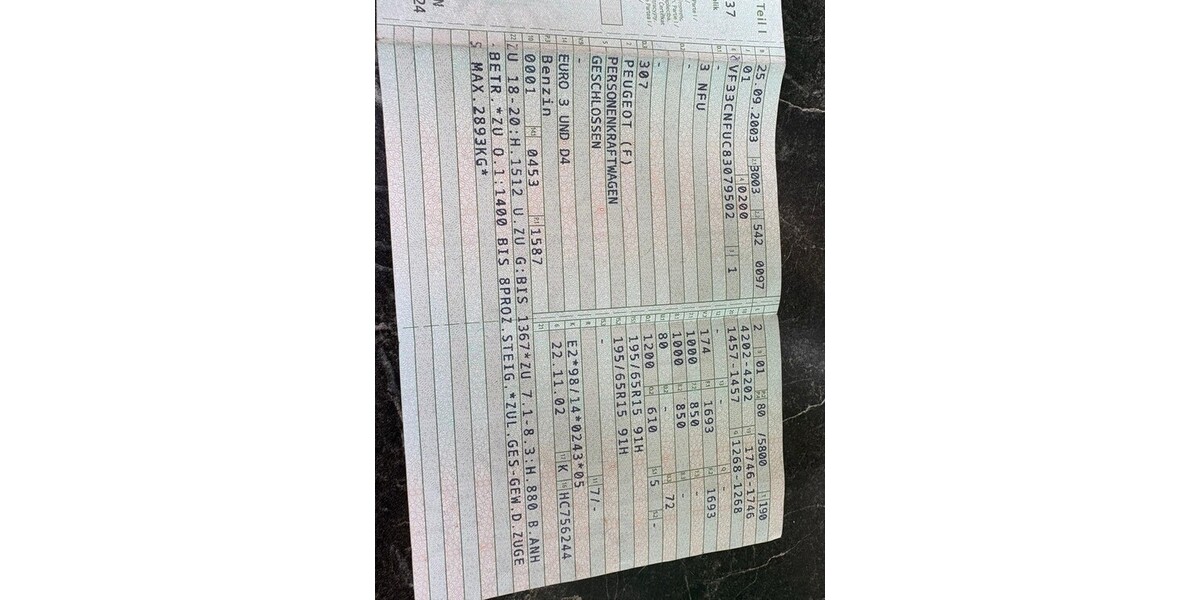 Teil I
25.09.2003 3003 542 0097
01 0200
VF33CNFUC83079502 1
-
3 NFU
-
-
307
PEUGEOT (F)
PERSONENKRAFTWAGEN
GESCHLOSSEN
-
EURO 3 UND D4
Benzin
0001 0453 1587
2 01 80 /5800 190
4202-4202 1746-1746
1457-1457 1268-1268
- - -
174 1693 1693
1000 850 -
1000 850 -
80 - 72
1200 610 5 -
195/65R15 91H
195/65R15 91H
- 7/-
E2*98/14*0243*05
22.11.02 K HC756244
ZU 18-20:H.1512 U.ZU G:BIS 1367*ZU 7.1-8.3:H.880 B.ANH
BETR.*ZU O.1:1400 BIS 8PROZ.STEIG.*ZUL.GES-GEW.D.ZUGE
S MAX.2893KG*
37
N
24